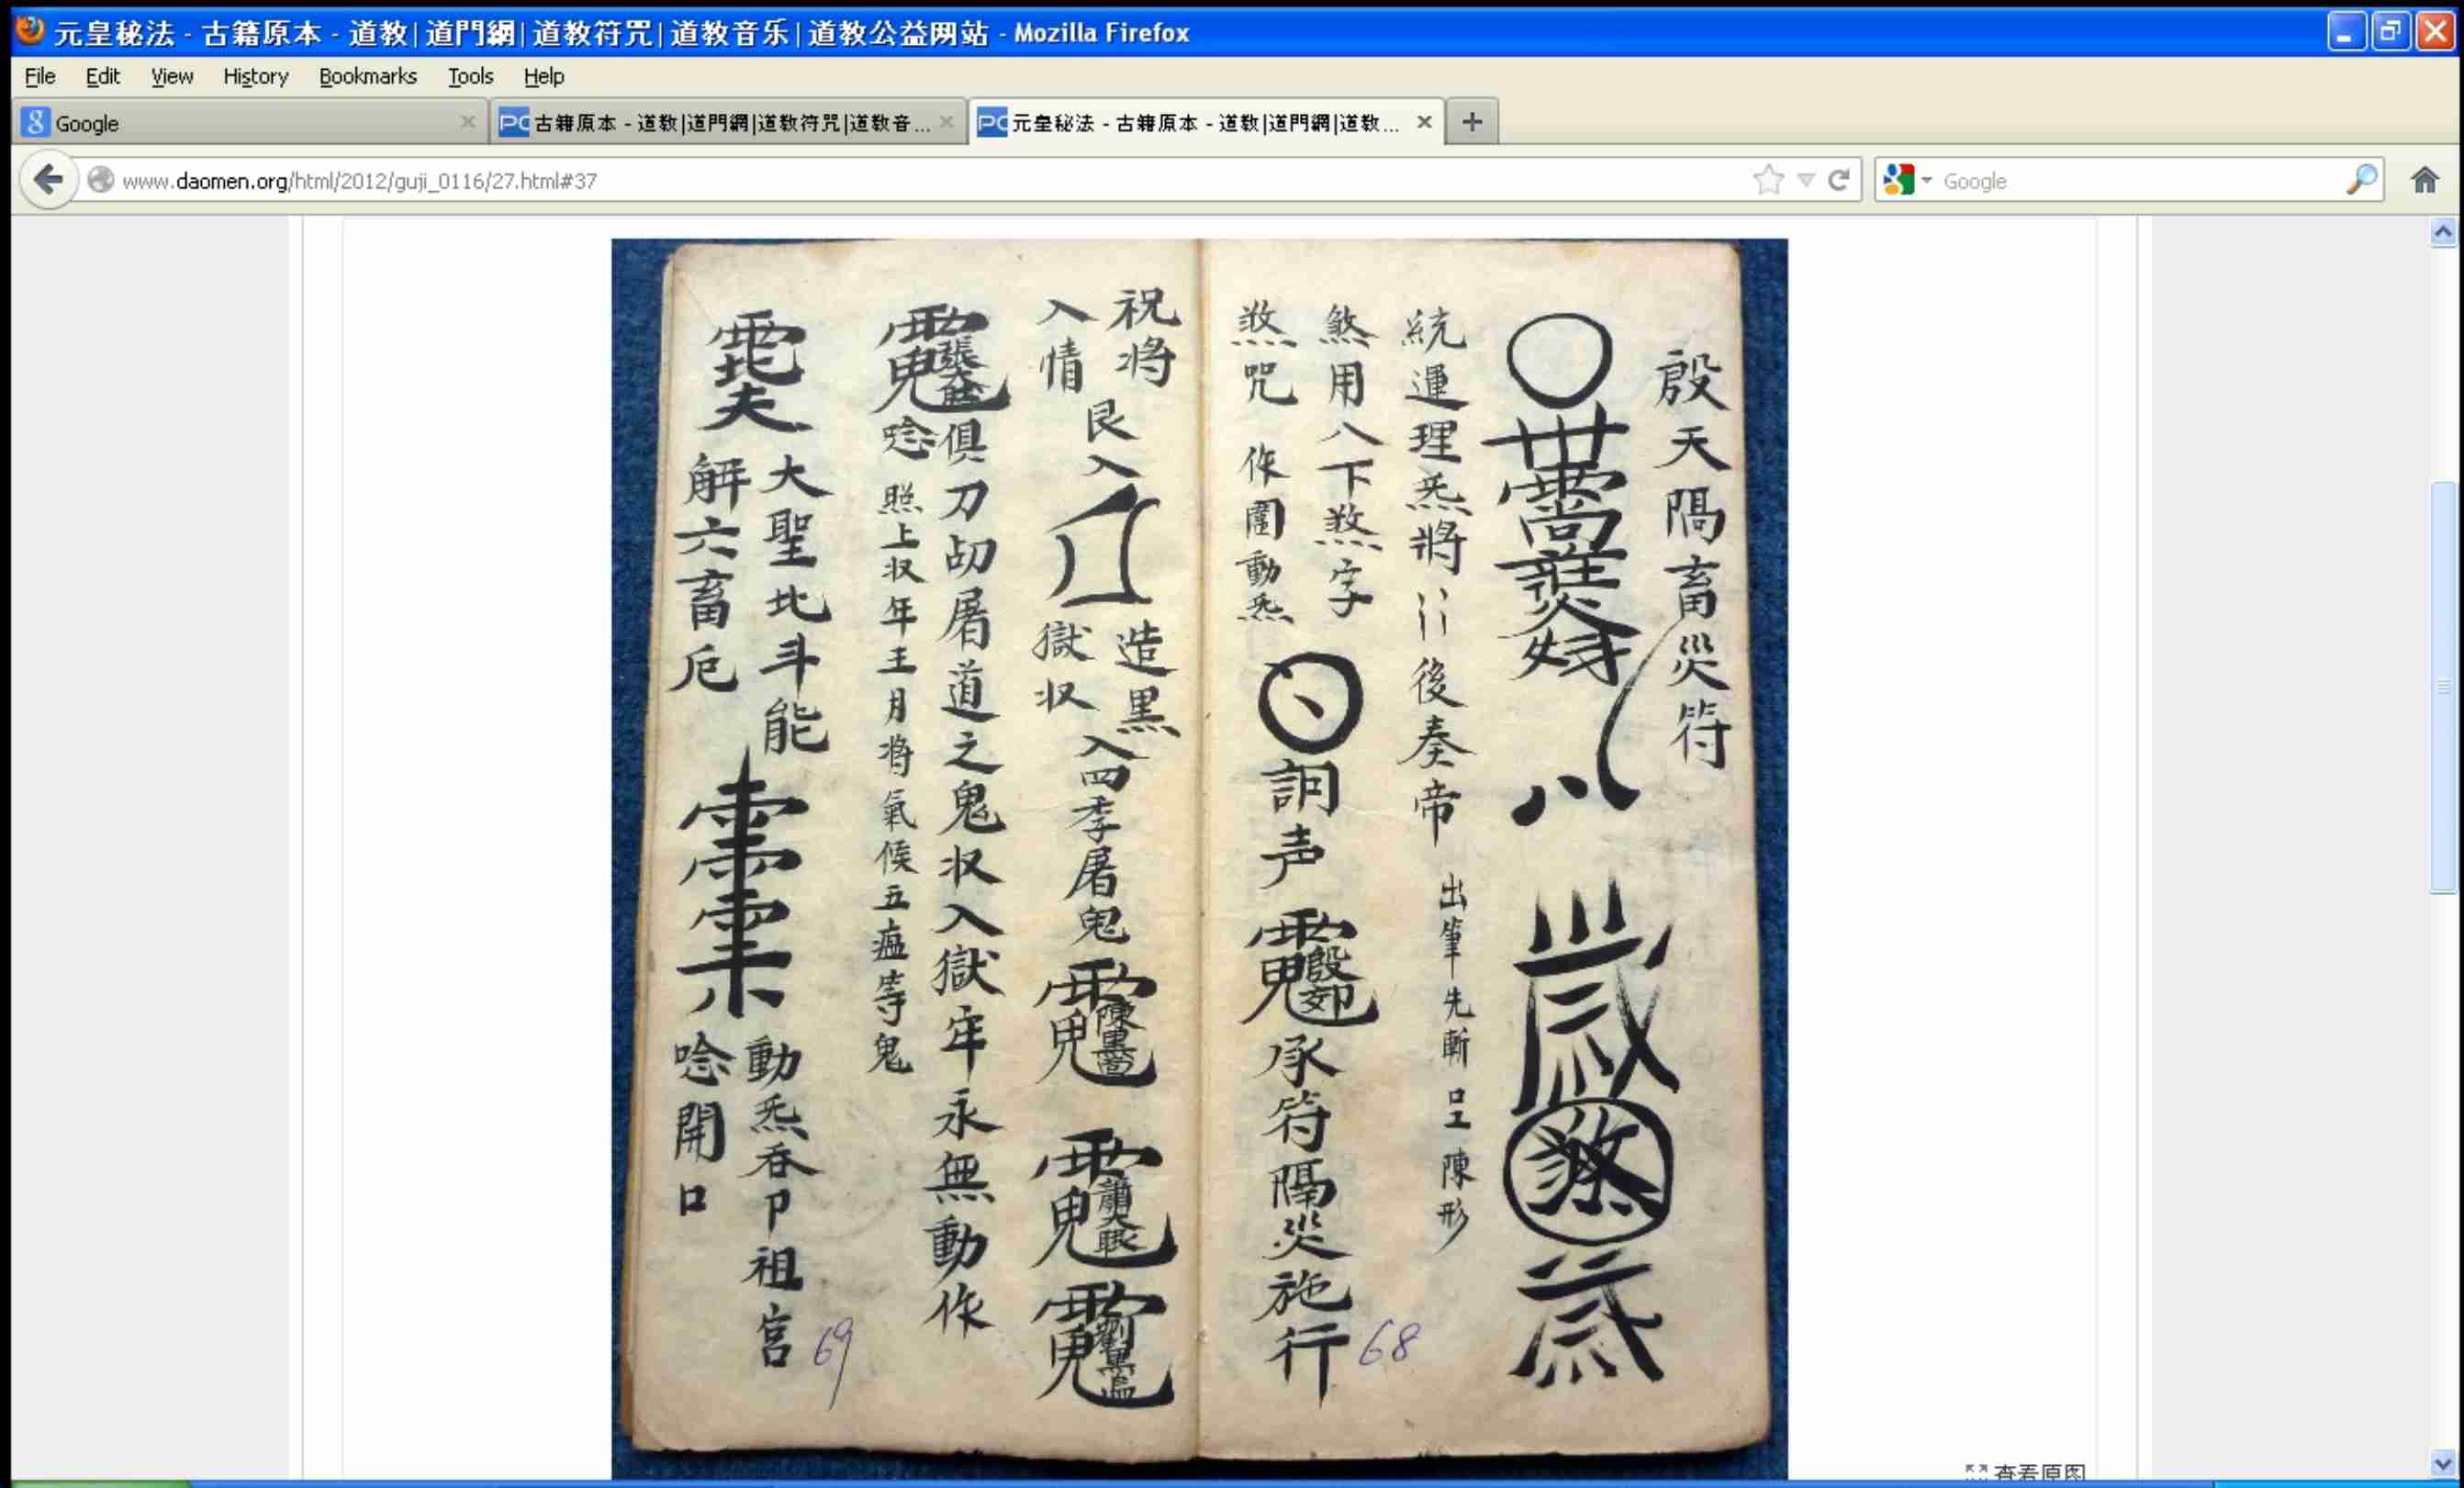 元皇秘法 - 古籍原本 - 道教|道門網|道教符咒|道教音乐|道教公益网站 - Mozilla Firefox
File Edit View History Bookmarks Tools Help
Google
古籍原本 - 道教|道門網|道教符咒|道教音...
元皇秘法 - 古籍原本 - 道教|道門網|道教...
www.daomen.org/html/2012/guji_0116/27.html#37
Google
殷天隔畜災符
統運理炁將 後奏帝 出筆先斬 陳形
煞用八下煞字
煞咒 作圈動炁
声
承符隔災施行
68
祝將
入情
艮入
造黑
獄収
入四季屠鬼
俱刀屠道之鬼収入獄牢永無動作
唸照上収年王月將氣候五瘟等鬼
大聖北斗能
解六畜厄
動炁吞卩祖宫
唸開口
69
查看原图